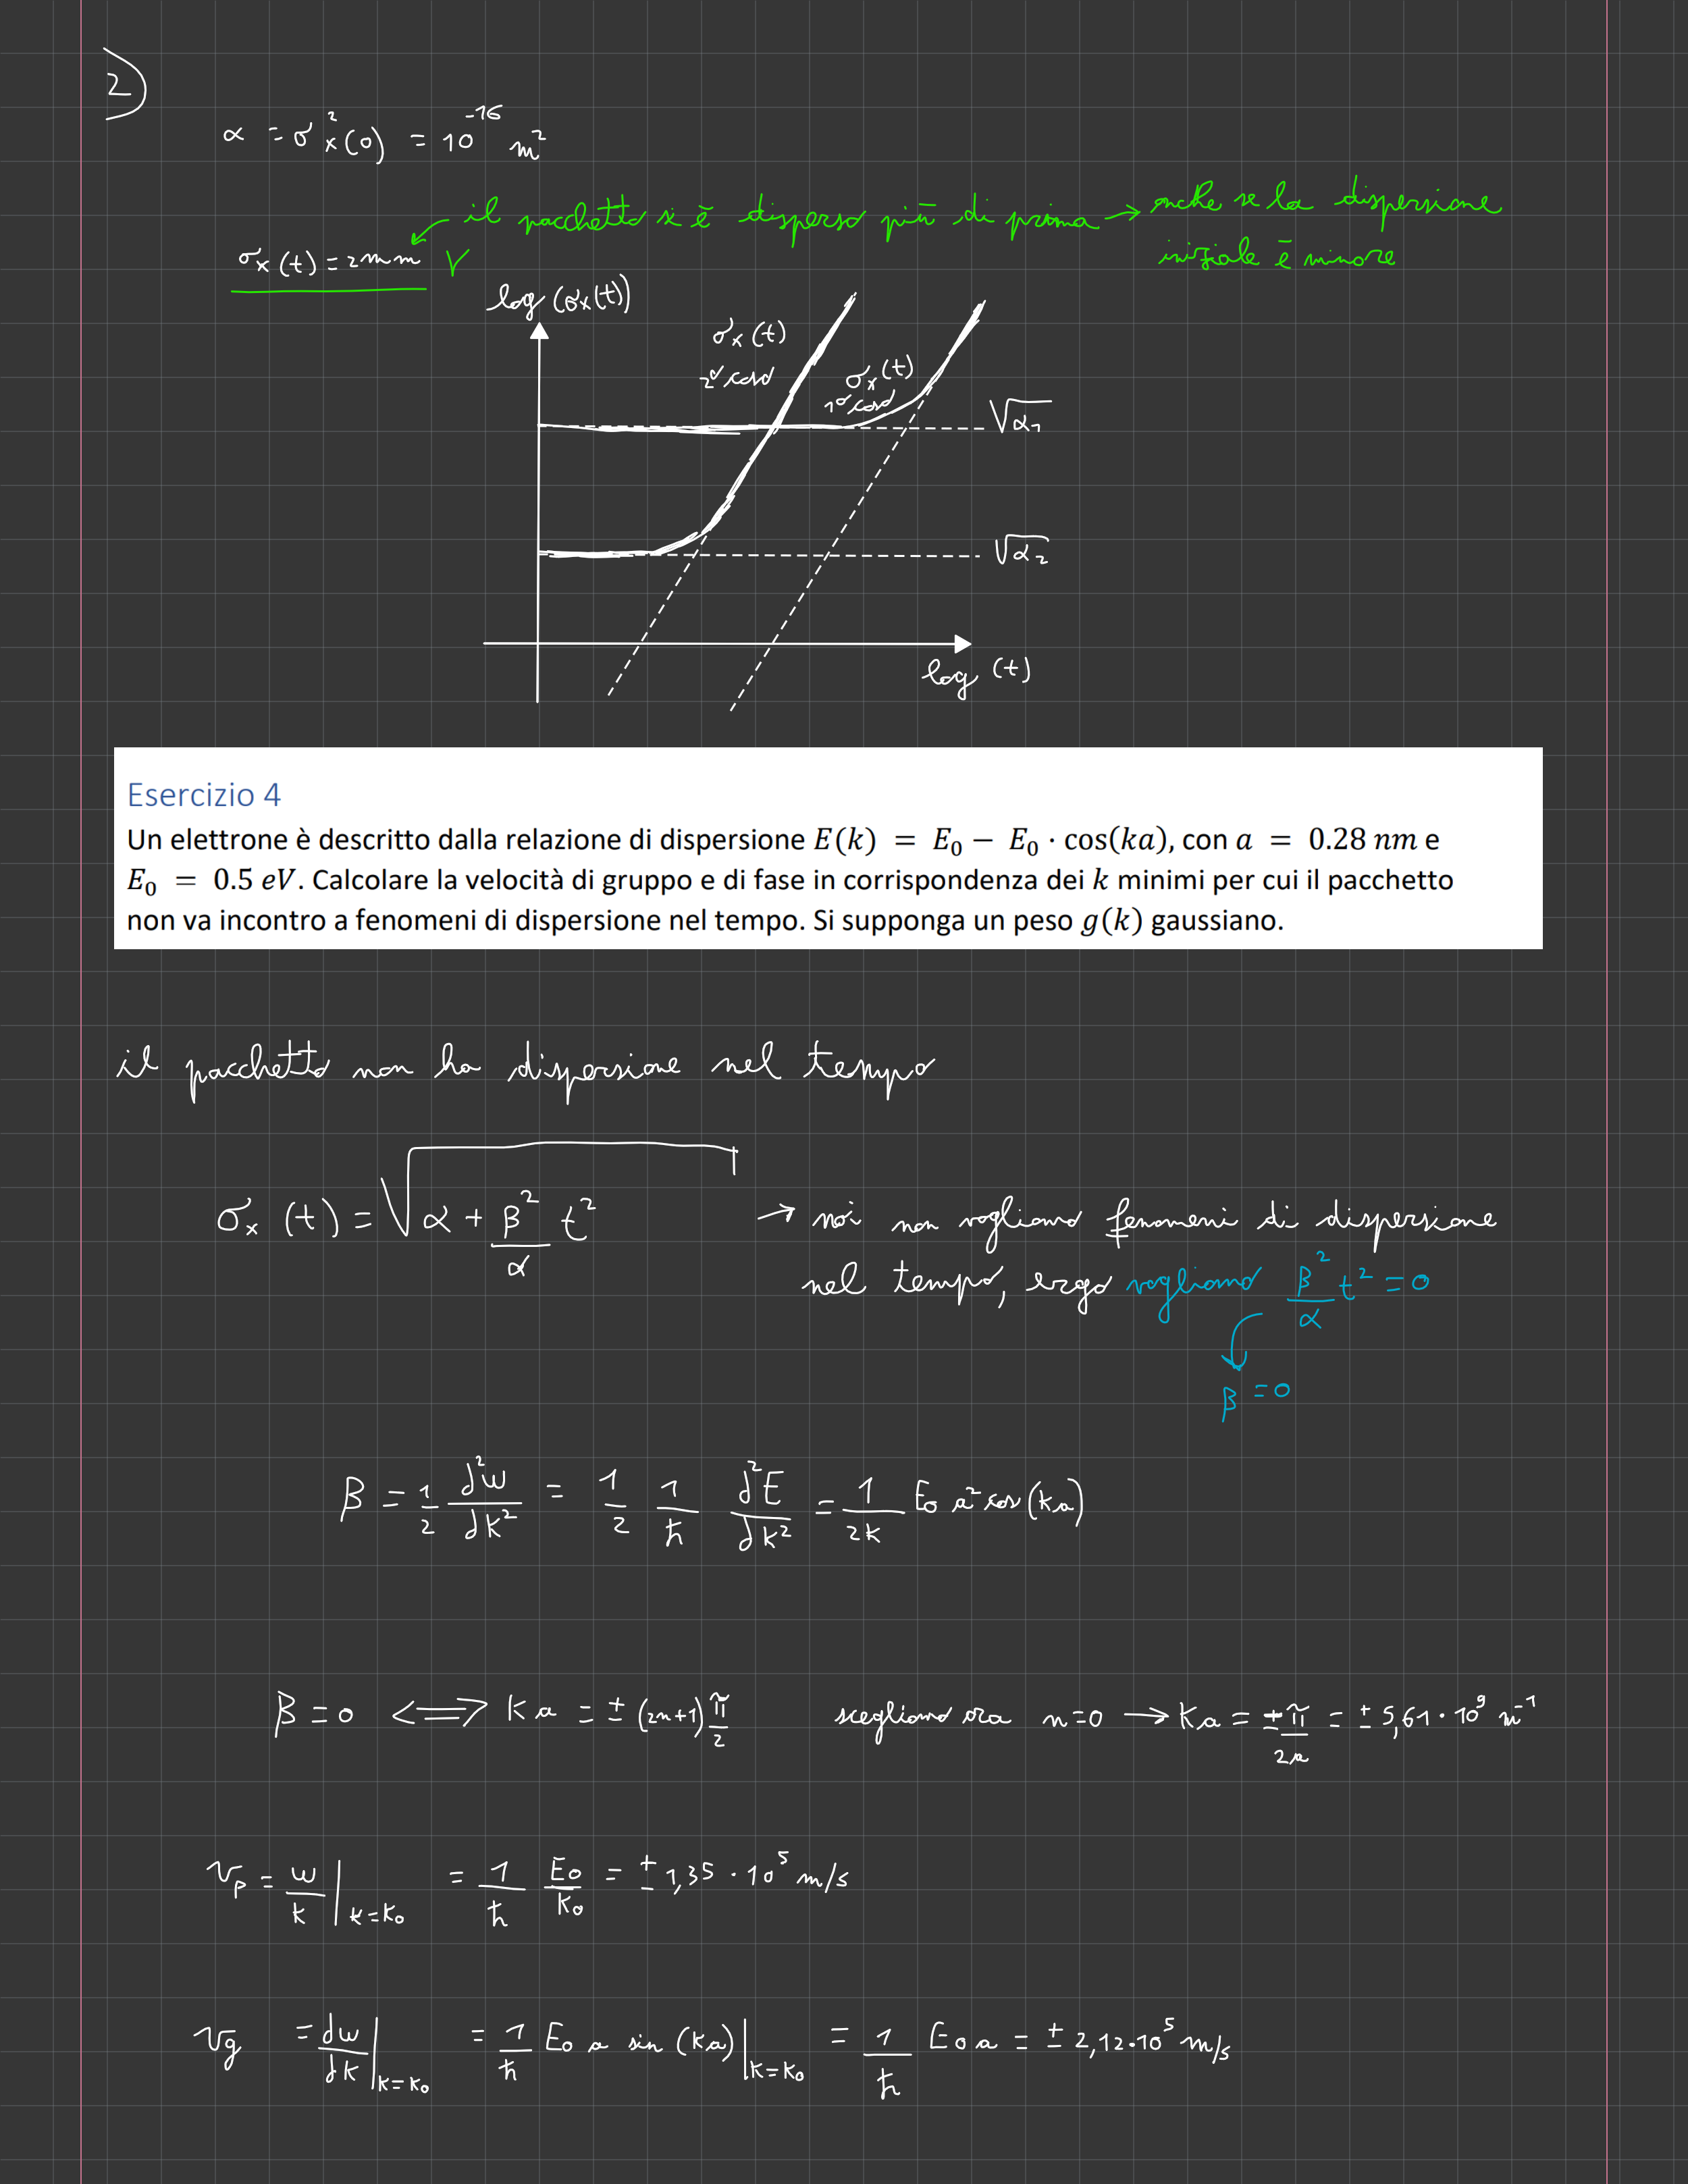 2)
α = σx²(0) = 10⁻¹⁶ m²
il pacchetto si è disperso più di prima → anche se la dispersione
iniziale è minore
σx(t) = 2mm
log(σx(t))
σx(t)
2° caso
σx(t)
1° caso
√α₁
√α₂
log(t)
Esercizio 4
Un elettrone è descritto dalla relazione di dispersione E(k) = E₀ − E₀ · cos(ka), con a = 0.28 nm e
E₀ = 0.5 eV. Calcolare la velocità di gruppo e di fase in corrispondenza dei k minimi per cui il pacchetto
non va incontro a fenomeni di dispersione nel tempo. Si supponga un peso g(k) gaussiano.
il pacchetto non ha dispersione nel tempo
σx(t) = √(α + β²/α t²) → noi non vogliamo fenomeni di dispersione
nel tempo, ergo vogliamo β²/α t² = 0
β = 0
β = 1/2 d²w/dk² = 1/2 1/ħ d²E/dk² = 1/2k E₀ a² cos(ka)
β = 0 <=> Ka = ± (2n+1) π/2 scegliamo ora n=0 → Ka = ±π/2a = ± 5,61 · 10⁹ m⁻¹
vp = w/k |k=k₀ = 1/ħ E₀/k₀ = ± 1,35 · 10⁵ m/s
vg = dw/dk |k=k₀ = 1/ħ E₀ a sin(ka) |k=k₀ = 1/ħ E₀ a = ± 2,12 · 10⁵ m/s